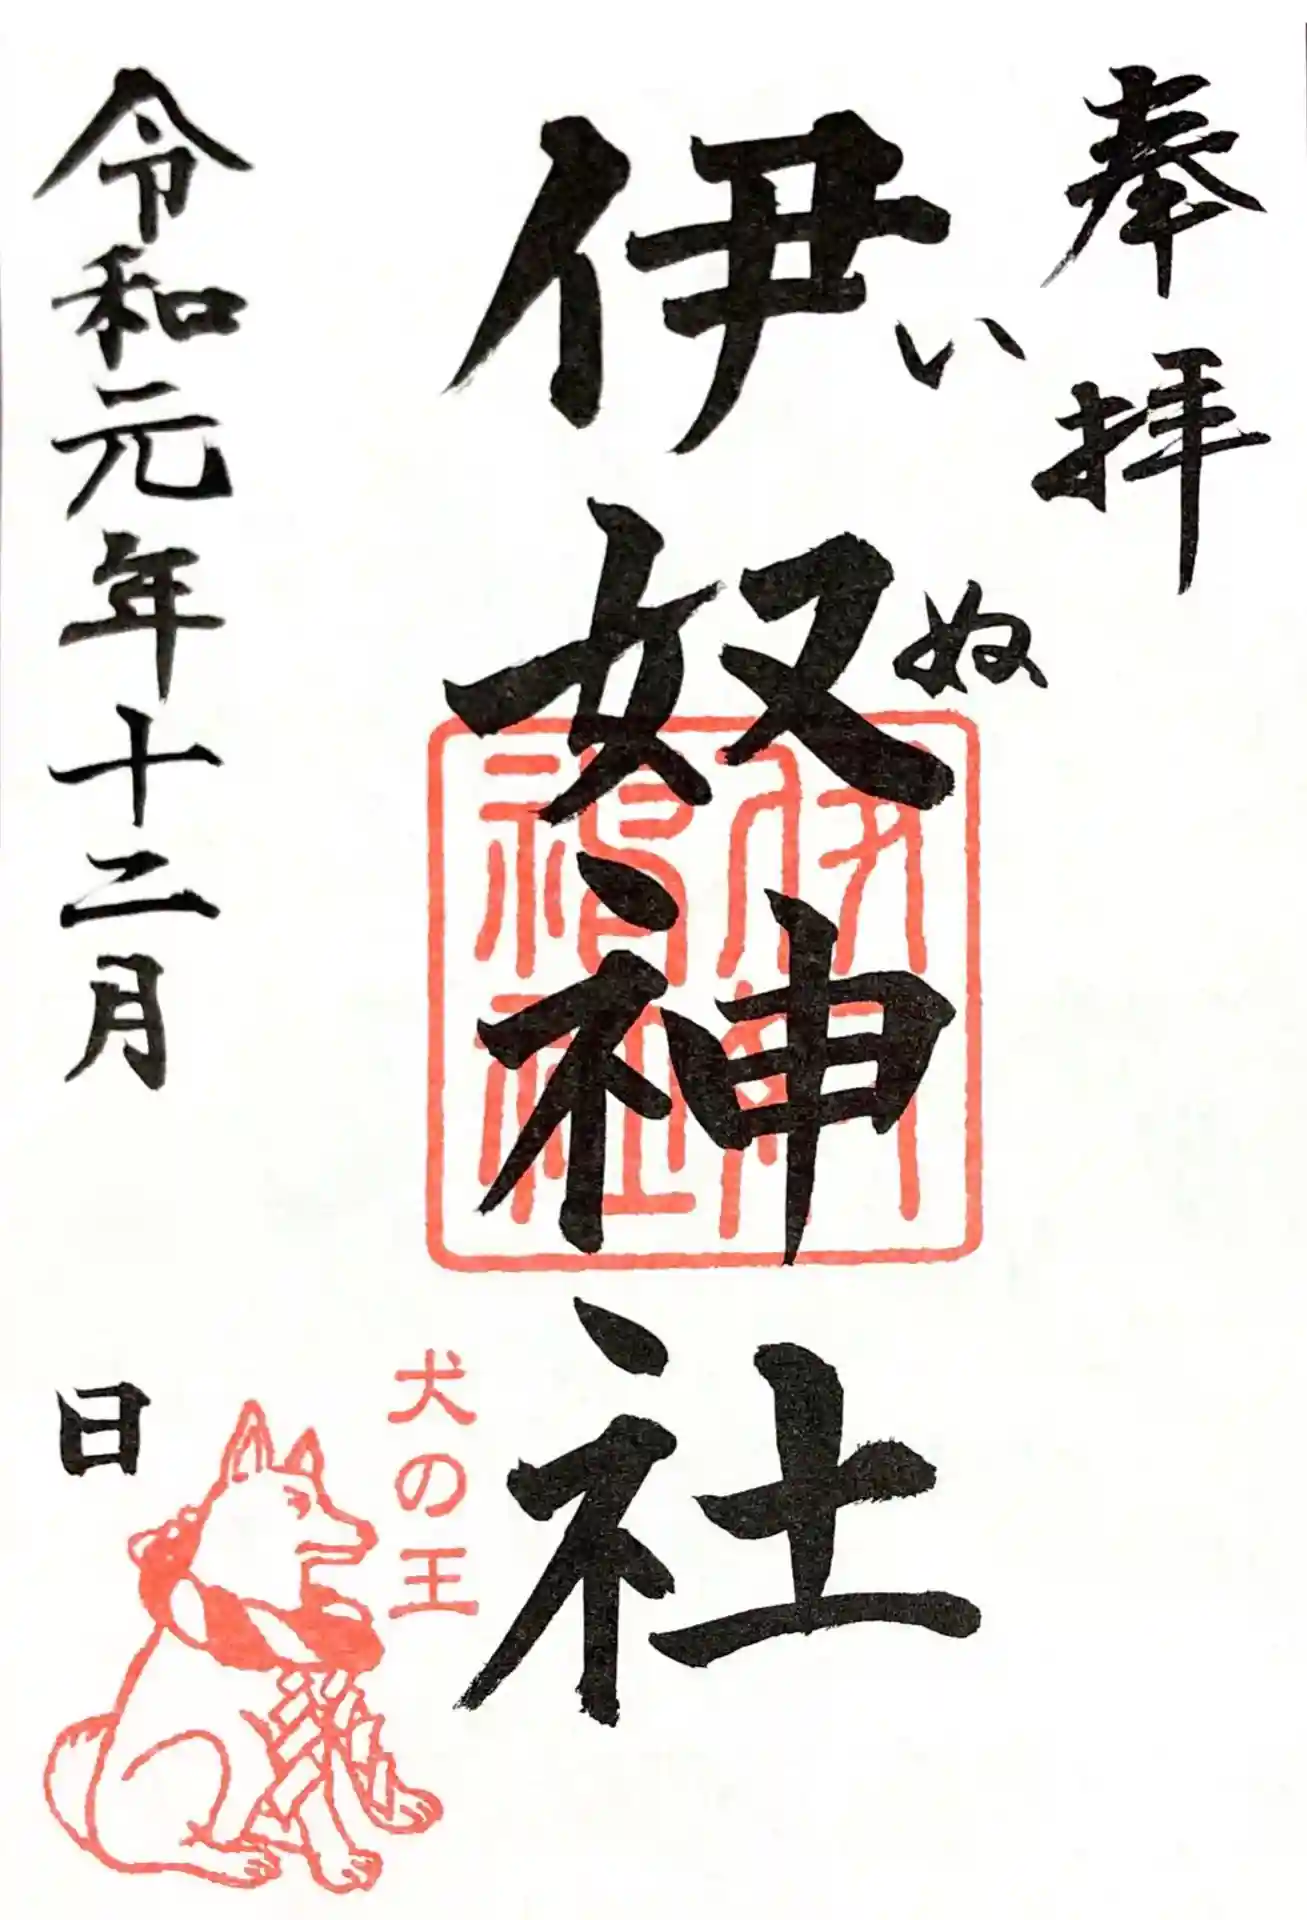 奉拝
いぬ
伊奴神社
伊奴神社
犬の王
令和元年十二月 日